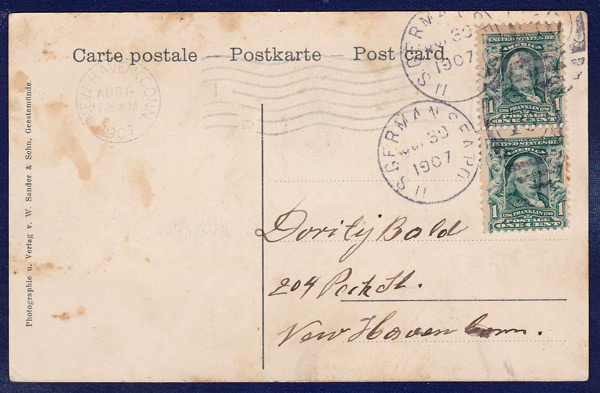 Carte postale — Postkarte — Post card.
NEW HAVEN, CONN.
AUG 1
1907
U.S. GERMAN SEA P.O.
JUL 30
1907
11
U.S. GERMAN SEA P.O.
JUL 30
1907
11
UNITED STATES OF
AMERICA
1706 FRANKLIN 1790
POSTAGE
1 ONE CENT 1
UNITED STATES OF
AMERICA
1706 FRANKLIN 1790
POSTAGE
1 ONE CENT 1
Photographie u. Verlag v. W. Sander & Sohn, Geestemünde.
Dority Bald
204 Peck St.
New Haven Conn.